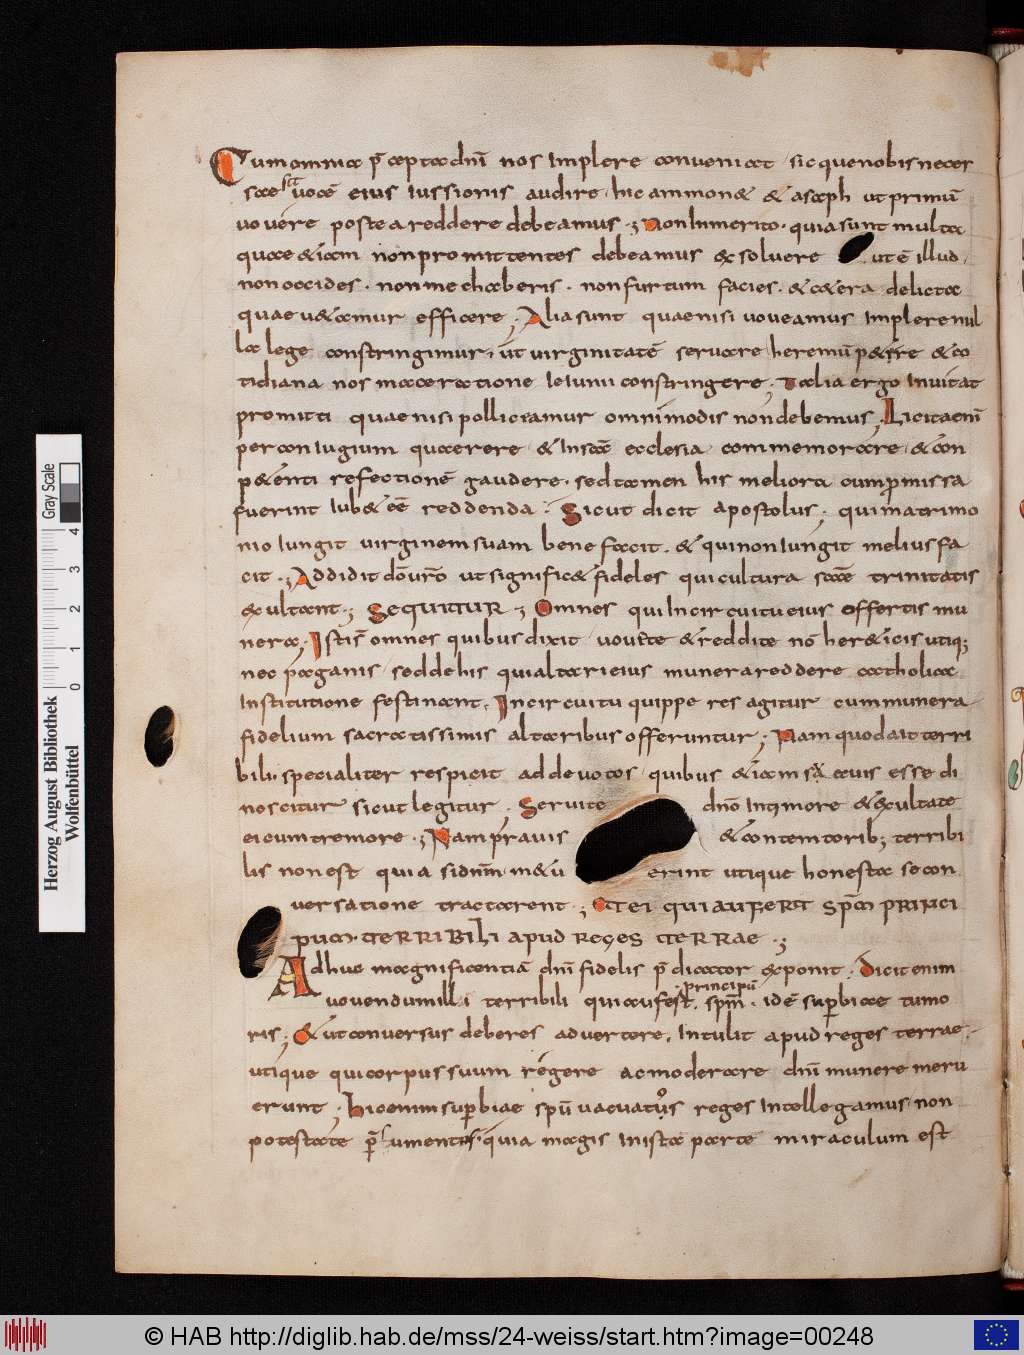 Cum omnia p̄cepta dn̄i nos Implere conveniat · sic quenobisneces
saƷ fia vocē eius Iussionis audire · hic ammon& & asaph ut primū
vovere postea reddere debeamus ·; NonInmerito · quia sunt multa
quae &iam non promittentes debeamus exsolvere utē illud ·
non occides · non mechaberis · non furtum facies · & c&era delicta
quae v&amur efficere ; Alia sunt quae nisi voveamus Implere nul
la lege constringimur · ut virginitatē servare heremū p&ere & co
tidiana nos maceratione Ieiunii constringere ; Talia ergo Invitat
promitti quae nisi polliceamur omnimodis non debemus ; Licita enī
per conIugium quaerere · & Insc̄a ecclesia commemorare · & con
p&enti refectionē gaudere · sed tamen his meliora cum p̄missa
fuerint Iub& eē reddenda · Sicut dicit apostolus ; qui matrimo
nio Iungit virginem suam bene facit · & qui non Iungit melius fa
cit ·; Addidit dōurō ut signific& fideles qui cultura sc̄ae trinitatis
exultant ·; SEQUITUR ·; Omnes qui In circuitu eius offertis mu
nera ; Istis̄ omnes quibus dixit · vovete & reddite nō her&icis utiq;
nec paganis · sed de his qui altari eius munera reddere catholica
Institutione festinant · In circuitu quippe res agitur cum munera
fidelium sacratissimis altaribus offeruntur ; Nam quod ait terri
bili · specialiter respicit ad devotos · quibus &iam sƷ avis esse di
noscitur sicut legitur · Servite dn̄o In timore & exultate
ei cum tremore ·; Nam pravis & contemtorib; terribi
lis non est quia si dnm̄ m&ū erint utique honesta se con
versatione tractarent ·; ET EI QUI AUFERT SPM̄ PRINCI
PUM · TERRIBILI APUD REGES TERRAE ·;
Adhuc magnificentiā dn̄i fidelis p̄dicator exponit · Dicit enim
vovendum illi terribili qui aufest · principū spm̄ · idē superbiae tumo
ris ; & ut conversus deberes advertere · Intulit apud reges terrae ·
utique qui corpus suum regere ac moderare dn̄i munere meru
erunt ; Hic enim superbiae spū vacuatos reges Intellegamus · non
potestate p̄sumentes · quia magis In ista parte miraculum est
Herzog August Bibliothek
Wolfenbüttel
0 1 2 3 4
Gray Scale
© HAB http://diglib.hab.de/mss/24-weiss/start.htm?image=00248